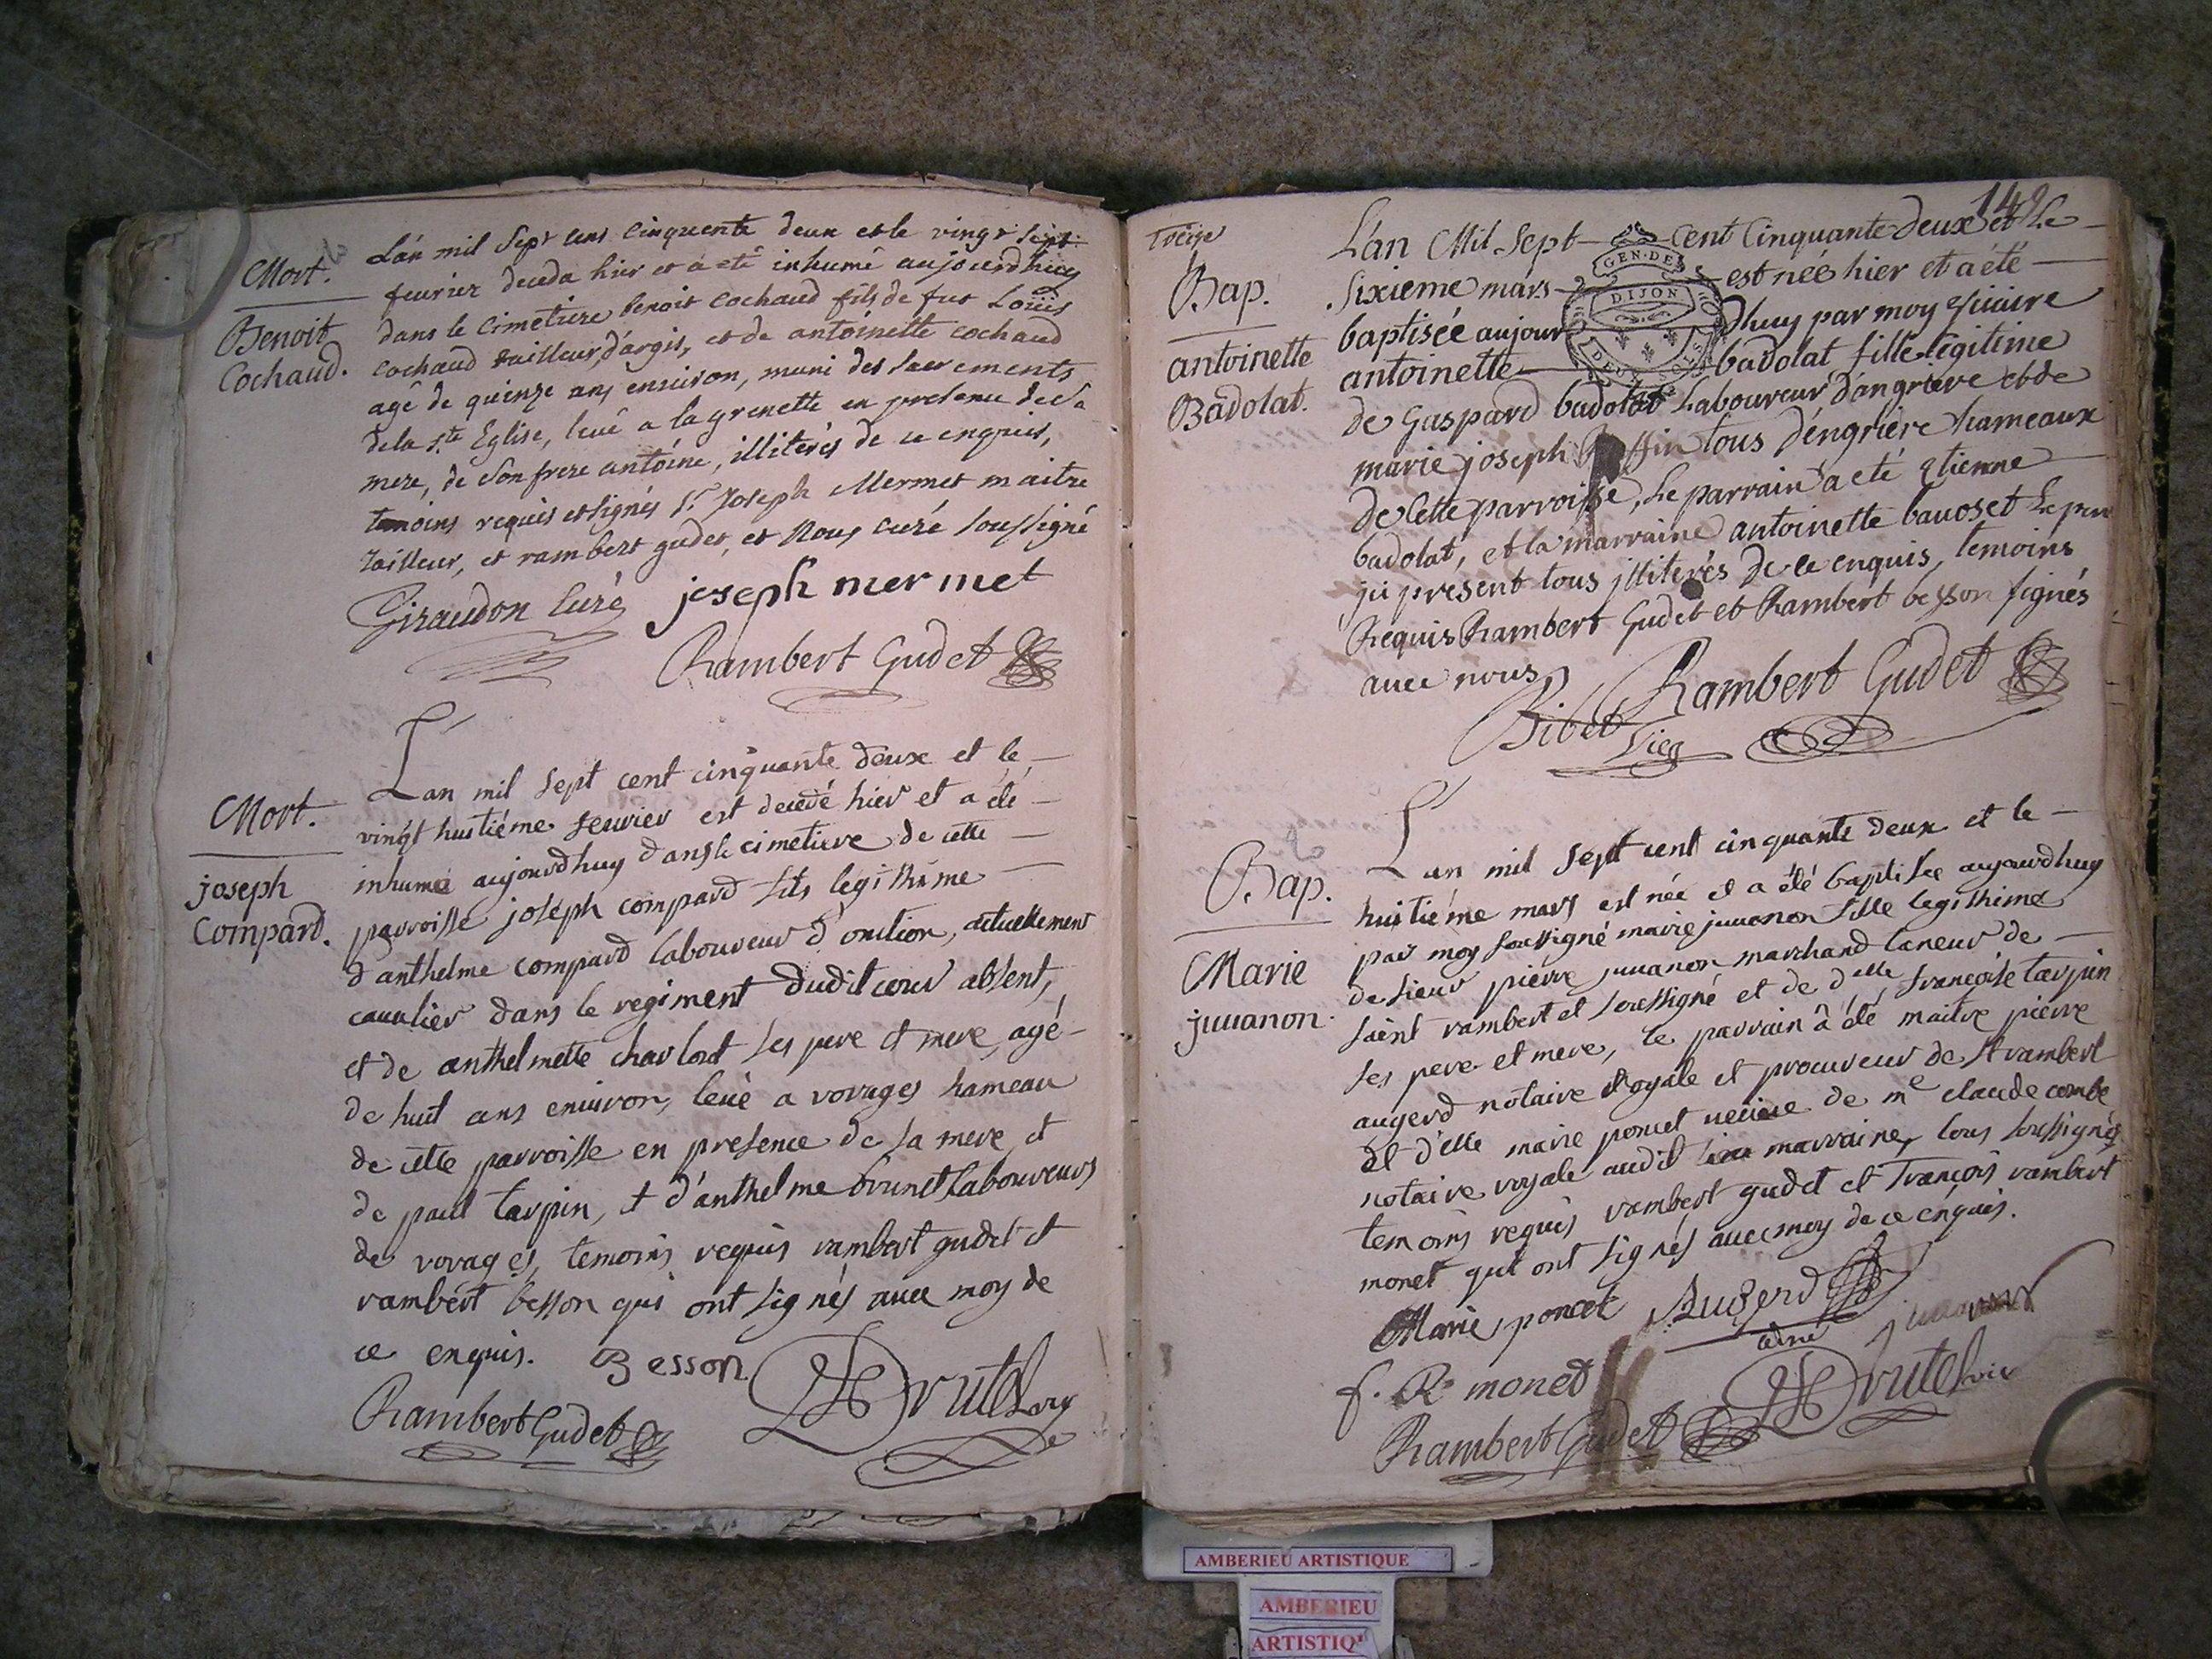 Mort.
Benoit
Cochaud.
L'an mil sept cens cinquente deux et le vingt sept
feuvrier deceda hier et a eté inhumé aujourdhuy
dans le cimetiere benoit cochaud fils de fut Loüis
cochaud tailleur, d'argis, et de antoinette cochaud
agé de quinze ans environ, muni des sacrements
de la Ste Eglise, levé a la grenette en presence de sa
mere, de son frere antoine, illiterés de ce enquis,
temoins requis et signés Sr Joseph Mermet maitre
tailleur, et rambert gudet, et Nous curé soussigné
Giraudon curé joseph mermet
Rambert Gudet
Mort.
joseph
Compard.
L'an mil sept cent cinquante deux et le
vingt huitiéme fevrier est decedé hier et a été
inhumé aujourdhuy dans le cimetiere de cette
parroisse joseph compard fils legithime
d'anthelme compard laboureur d'oncilion, actuellement
cavalier dans le regiment dudit absent,
et de anthelmette ses pere et mere, agé
de huit ans environ, levé a vorages hameau
de cette parroisse en presence de sa mere et
de paul tarpin, et d'anthelme brunet laboureurs
de vorages, temoins requis rambert gudet et
rambert besson qui ont signés avec moy de
ce enquis. Besson
Rambert Gudet
treize
149
Bap.
antoinette
Badolat.
L'an Mil Sept Cent Cinquante deux et Le
Sixieme mars est née hier et a été
baptisée aujourdhuy par moy
antoinette badolat fille legitime
de Gaspard badolat Laboureur d'angriere et de
marie joseph tous d'engriere hameaux
de Cette parroisse, Le parrain a eté etienne
badolat, et la marraine antoinette bavoset Le pere
ici present tous illiterés de ce enquis, temoins
Requis Rambert Gudet et Rambert besson signés
avec nous
Bibet Rambert Gudet
Vicq
GEN. DE
DIJON
DEUX SOLS
Bap.
Marie
juvanon.
L'an mil sept cent cinquante deux et le
huitiéme mars est née et a été baptisée aujourdhuy
par moy soussigné marie juvanon fille legithime
de sieur pierre juvanon marchand taneur de
saint rambert et soussigné et de delle françoise tarpin
ses pere et mere, le parrain a été maitre pierre
augerd notaire Royale et procureur de St rambert
et d'elle marie poncet de me claude combe
notaire royale audit lieu marraine, tous soussignés
temoins requis rambert gudet et françois rambert
monet qui ont signés avec moy de ce enquis.
Marie poncet Augerd juvanon
ainé
f. R. monet
Rambert Gudet
AMBERIEU ARTISTIQUE
AMBERIEU
ARTISTIQ